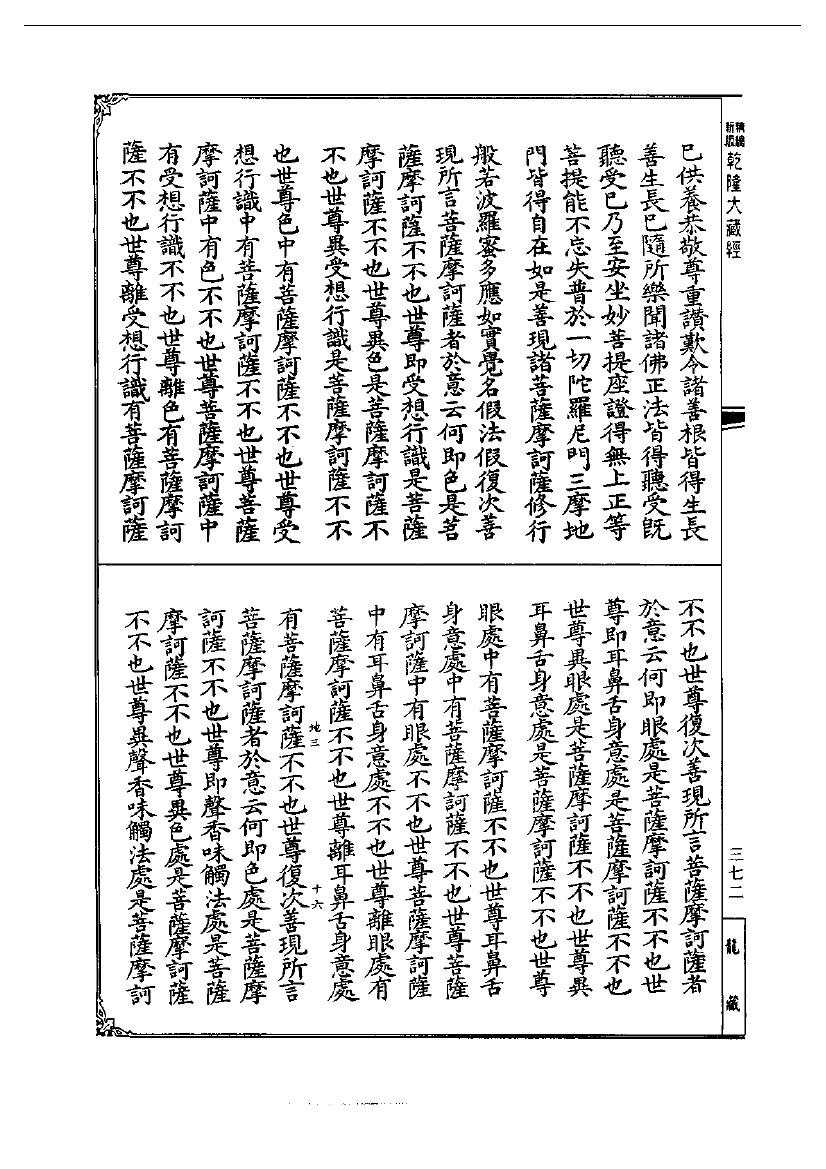 精編新版
乾隆大藏經
已供養恭敬尊重讚歎令諸善根皆得生長
善生長已隨所樂聞諸佛正法皆得聽受既
聽受已乃至安坐妙菩提座證得無上正等
菩提能不忘失普於一切陀羅尼門三摩地
門皆得自在如是善現諸菩薩摩訶薩修行
般若波羅蜜多應如實覺名假法假復次善
現所言菩薩摩訶薩者於意云何即色是菩
薩摩訶薩不不也世尊即受想行識是菩薩
摩訶薩不不也世尊異色是菩薩摩訶薩不
不也世尊異受想行識是菩薩摩訶薩不不
也世尊色中有菩薩摩訶薩不不也世尊受
想行識中有菩薩摩訶薩不不也世尊菩薩
摩訶薩中有色不不也世尊菩薩摩訶薩中
有受想行識不不也世尊離色有菩薩摩訶
薩不不也世尊離受想行識有菩薩摩訶薩
不不也世尊復次善現所言菩薩摩訶薩者
於意云何即眼處是菩薩摩訶薩不不也世
尊即耳鼻舌身意處是菩薩摩訶薩不不也
世尊異眼處是菩薩摩訶薩不不也世尊異
耳鼻舌身意處是菩薩摩訶薩不不也世尊
眼處中有菩薩摩訶薩不不也世尊耳鼻舌
身意處中有菩薩摩訶薩不不也世尊菩薩
摩訶薩中有眼處不不也世尊菩薩摩訶薩
中有耳鼻舌身意處不不也世尊離眼處有
菩薩摩訶薩不不也世尊離耳鼻舌身意處
地三 十六
有菩薩摩訶薩不不也世尊復次善現所言
菩薩摩訶薩者於意云何即色處是菩薩摩
訶薩不不也世尊即聲香味觸法處是菩薩
摩訶薩不不也世尊異色處是菩薩摩訶薩
不不也世尊異聲香味觸法處是菩薩摩訶
三七二
龍藏